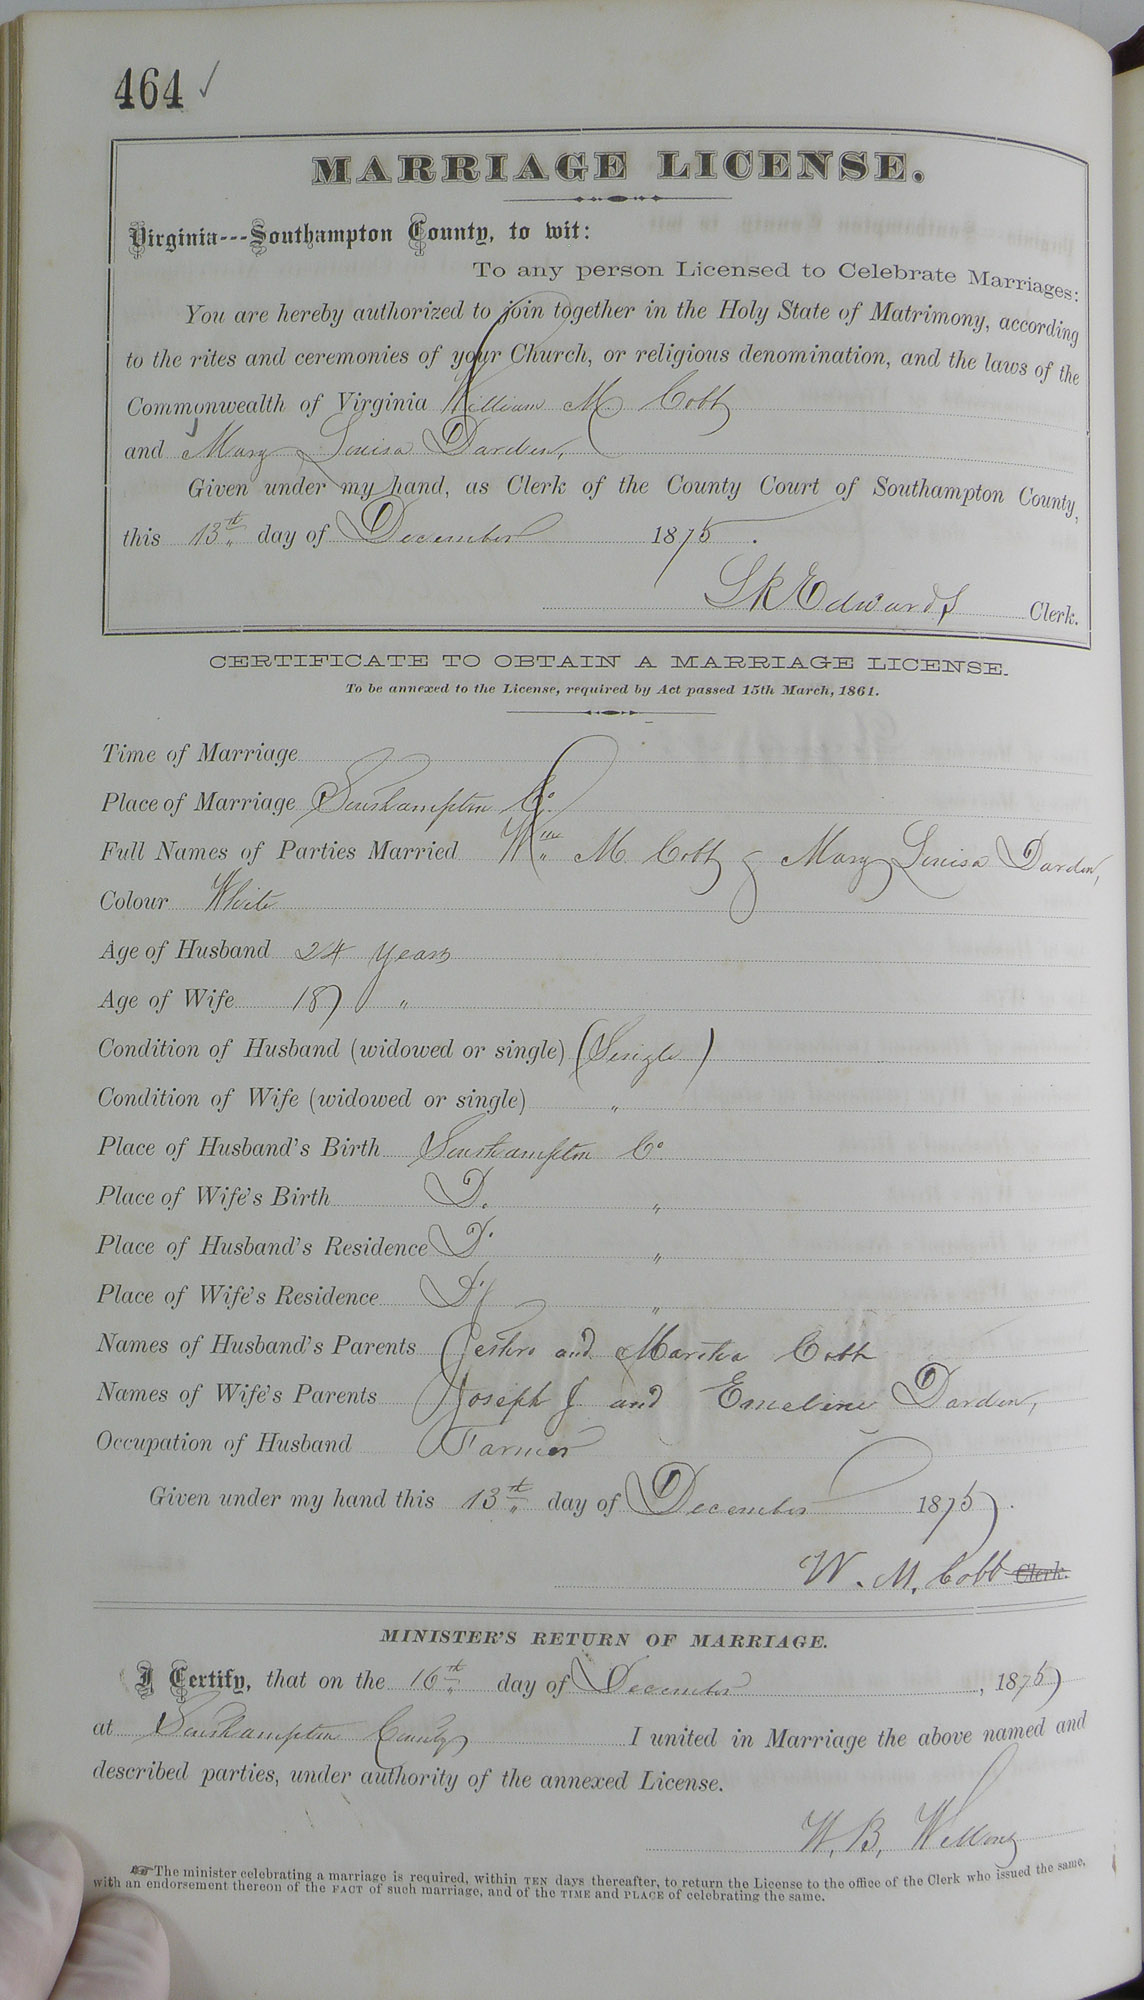 464 ✓
MARRIAGE LICENSE.
Virginia---Southampton County, to wit:
To any person Licensed to Celebrate Marriages:
You are hereby authorized to join together in the Holy State of Matrimony, according
to the rites and ceremonies of your Church, or religious denomination, and the laws of the
Commonwealth of Virginia William M. Cobb
and Mary Louisa Darden,
Given under my hand, as Clerk of the County Court of Southampton County,
this 13th day of December 1875.
L R Edwards Clerk.
CERTIFICATE TO OBTAIN A MARRIAGE LICENSE.
To be annexed to the License, required by Act passed 15th March, 1861.
Time of Marriage
Place of Marriage Southampton Co
Full Names of Parties Married Wm M Cobb & Mary Louisa Darden,
Colour White
Age of Husband 24 years
Age of Wife 18 "
Condition of Husband (widowed or single) (Single)
Condition of Wife (widowed or single) "
Place of Husband's Birth Southampton Co
Place of Wife's Birth Do "
Place of Husband's Residence Do "
Place of Wife's Residence Do "
Names of Husband's Parents and Martha Cobb
Names of Wife's Parents Joseph J and Emeline Darden,
Occupation of Husband Farmer
Given under my hand this 13th day of December 1875.
W. M. Cobb Clerk.
MINISTER'S RETURN OF MARRIAGE.
I Certify, that on the 16th day of December, 1875
at Southampton County I united in Marriage the above named and
described parties, under authority of the annexed License.
W. B. Wellons
☞The minister celebrating a marriage is required, within TEN days thereafter, to return the License to the office of the Clerk who issued the same,
with an endorsement thereon of the FACT of such marriage, and of the TIME and PLACE of celebrating the same.